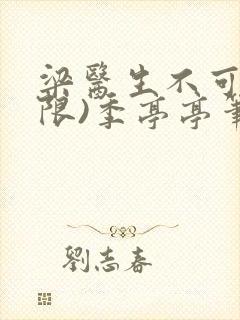 梁醫生不可
限)季亭亭筆
劉志春